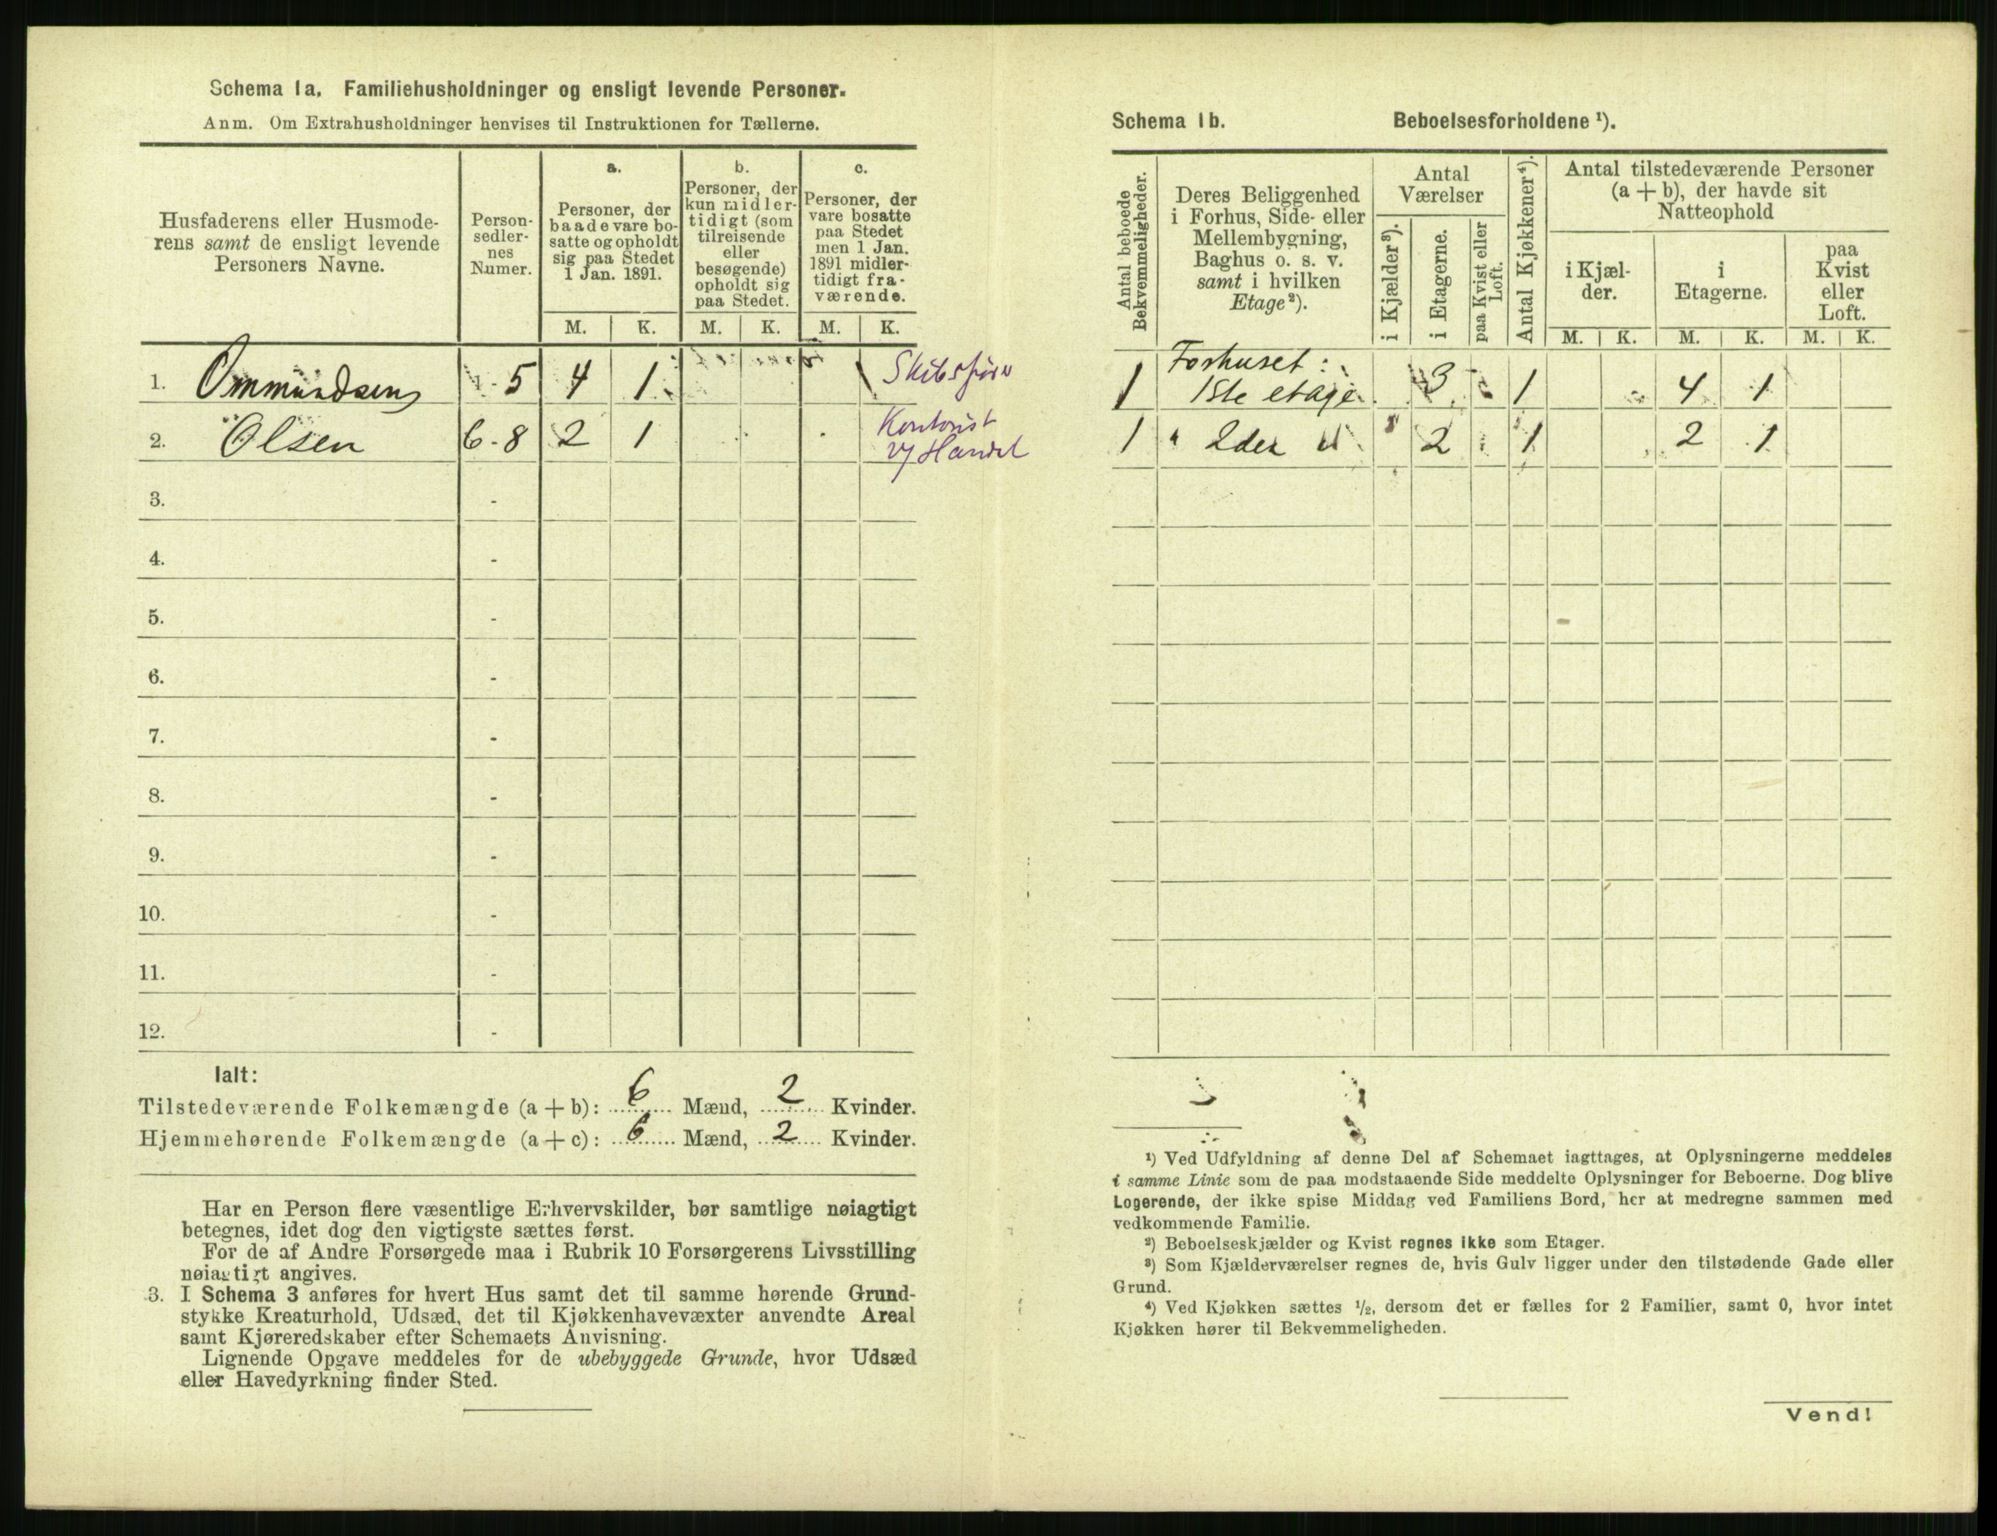 Schema 1a. Familiehusholdninger og ensligt levende Personer.
Anm. Om Extrahusholdninger henvises til Instruktionen for Tællerne.
Husfaderens eller Husmode-
rens samt de ensligt levende
Personers Navne.
Person-
sedler-
nes
Numer.
a.
Personer, der
baade vare bo-
satte og opholdt
sig paa Stedet
1 Jan. 1891.
b.
Personer, der
kun midler-
tidigt (som
tilreisende
eller
besøgende)
opholdt sig
paa Stedet.
c.
Personer, der
vare bosatte
paa Stedet
men 1 Jan.
1891 midler-
tidigt fra-
værende.
M. K. M. K. M. K.
1. Ommundsen 1 - 5 4 1 Skibsfører
2. Olsen 6 - 8 2 1 Kontorist
v/ Handel
3. -
4. -
5. -
6. -
7. -
8. -
9. -
10. -
11. -
12. -
Ialt:
Tilstedeværende Folkemængde (a + b): 6 Mænd, 2 Kvinder.
Hjemmehørende Folkemængde (a + c): 6 Mænd, 2 Kvinder.
Har en Person flere væsentlige Erhvervskilder, bør samtlige nøiagtigt
betegnes, idet dog den vigtigste sættes først.
For de af Andre Forsørgede maa i Rubrik 10 Forsørgerens Livsstilling
nøiagtigt angives.
3. I Schema 3 anføres for hvert Hus samt det til samme hørende Grund-
stykke Kreaturhold, Udsæd, det til Kjøkkenhavevæxter anvendte Areal
samt Kjøreredskaber efter Schemaets Anvisning.
Lignende Opgave meddeles for de ubebyggede Grunde, hvor Udsæd
eller Havedyrkning finder Sted.
Schema 1b. Beboelsesforholdene ¹).
Antal beboede
Bekvemmeligheder.
Deres Beliggenhed
i Forhus, Side- eller
Mellembygning,
Baghus o. s. v.
samt i hvilken
Etage ²).
Antal
Værelser
i Kjælder ³).
i Etagerne.
paa Kvist eller
Loft.
Antal Kjøkkener ⁴).
Antal tilstedeværende Personer
(a + b), der havde sit
Natteophold
i Kjæl-
der.
i
Etagerne.
paa
Kvist
eller
Loft.
M. K. M. K. M. K.
Forhuset:
1 1ste etage 3 1 4 1
1 " 2den " 2 1 2 1
¹) Ved Udfyldning af denne Del af Schemaet iagttages, at Oplysningerne meddeles
i samme Linie som de paa modstaaende Side meddelte Oplysninger for Beboerne. Dog blive
Logerende, der ikke spise Middag ved Familiens Bord, her at medregne sammen med
vedkommende Familie.
²) Beboelseskjælder og Kvist regnes ikke som Etager.
³) Som Kjælderværelser regnes de, hvis Gulv ligger under den tilstødende Gade eller
Grund.
⁴) Ved Kjøkken sættes ½, dersom det er fælles for 2 Familier, samt 0, hvor intet
Kjøkken hører til Bekvemmeligheden.
Vend!